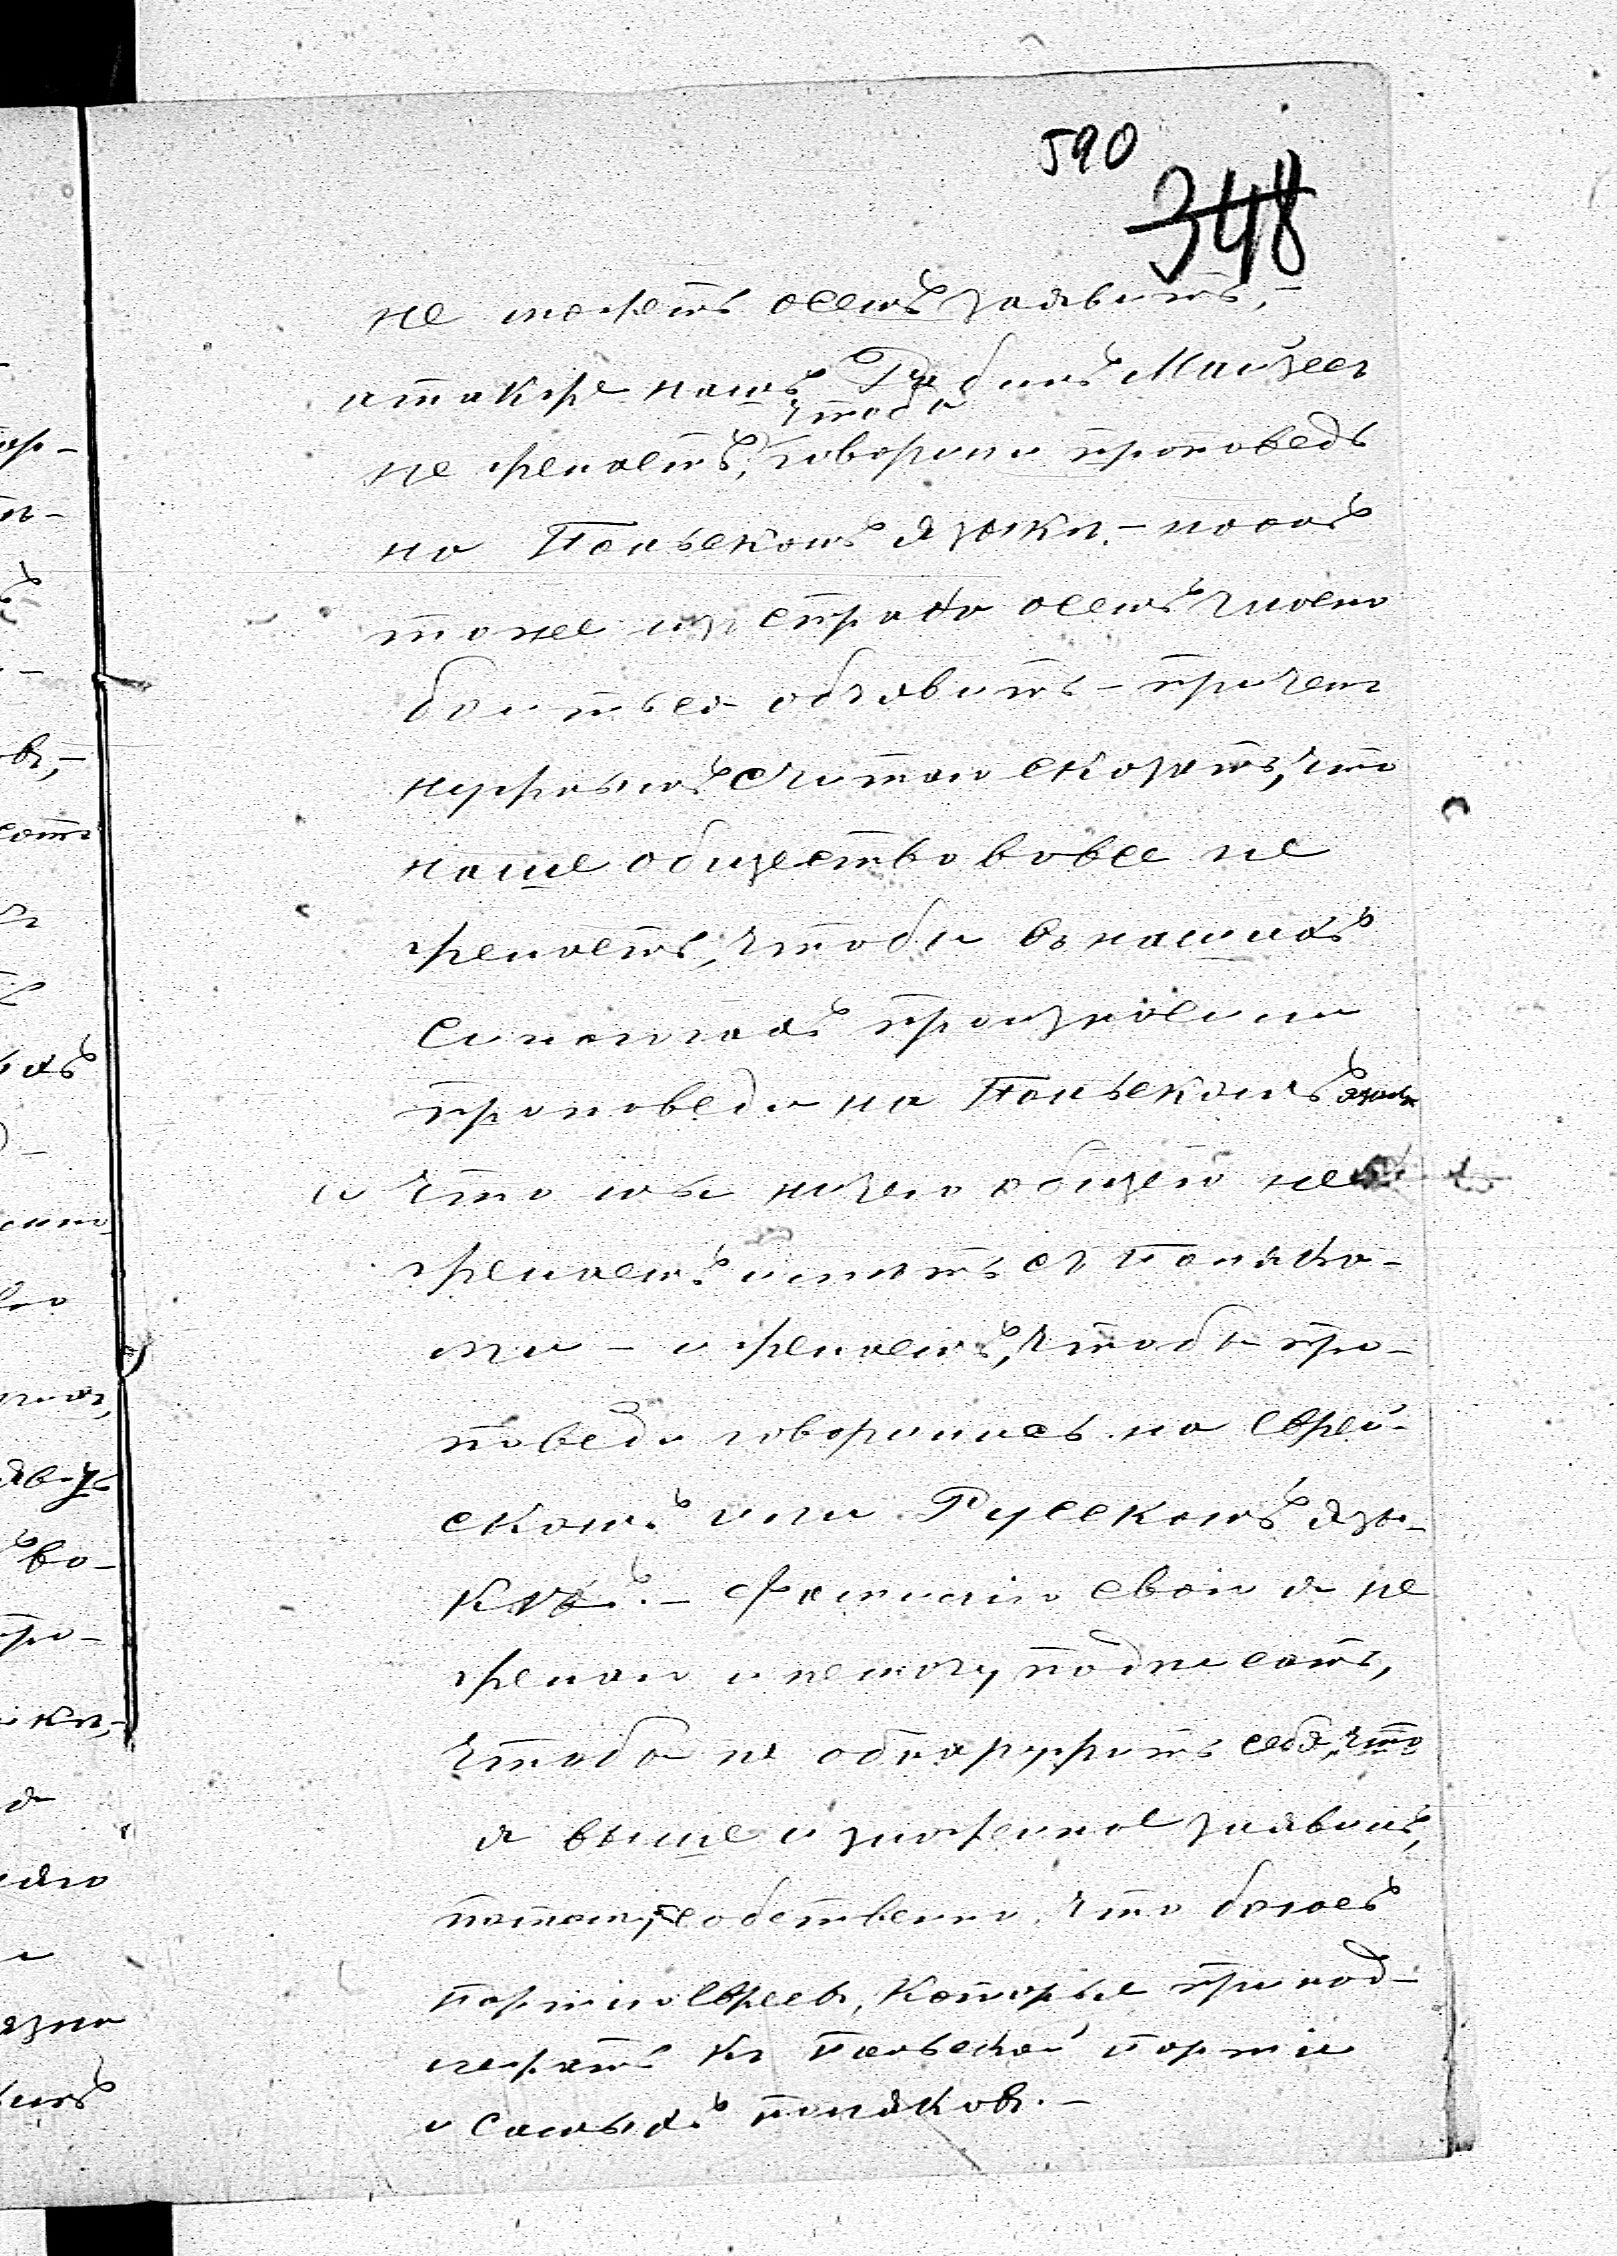 590
348
не можетъ о семъ заявить,-
а также нашъ Раббинъ Майзесъ
чтобы
не желаетъ, говорили проповедь
на Польскомъ языкѣ.- но онъ
тоже изъ страха о семъ гласно
боится объявить - при чемъ
нужнымъ считаю сказать, что
наше общество вовсе не
желаетъ, чтобы въ нашихъ
синагогахъ произносили
проповеди на Польскомъ языкѣ
и что мы ничего общего не
желаемъ имѣть съ поляка-
ми - и желаемъ, чтобы про-
поведи говорились на еврей-
скомъ или Русскомъ язы-
кахъ.- Фамилію свою я не
желаю и не могу подписать,
чтобы не обнаружить себя, что
я выше изложенное заявилъ,
потому собственно, что боюсь
партію Евреевъ, которые принад-
лежатъ къ польской партіи
и самыхъ поляковъ.-